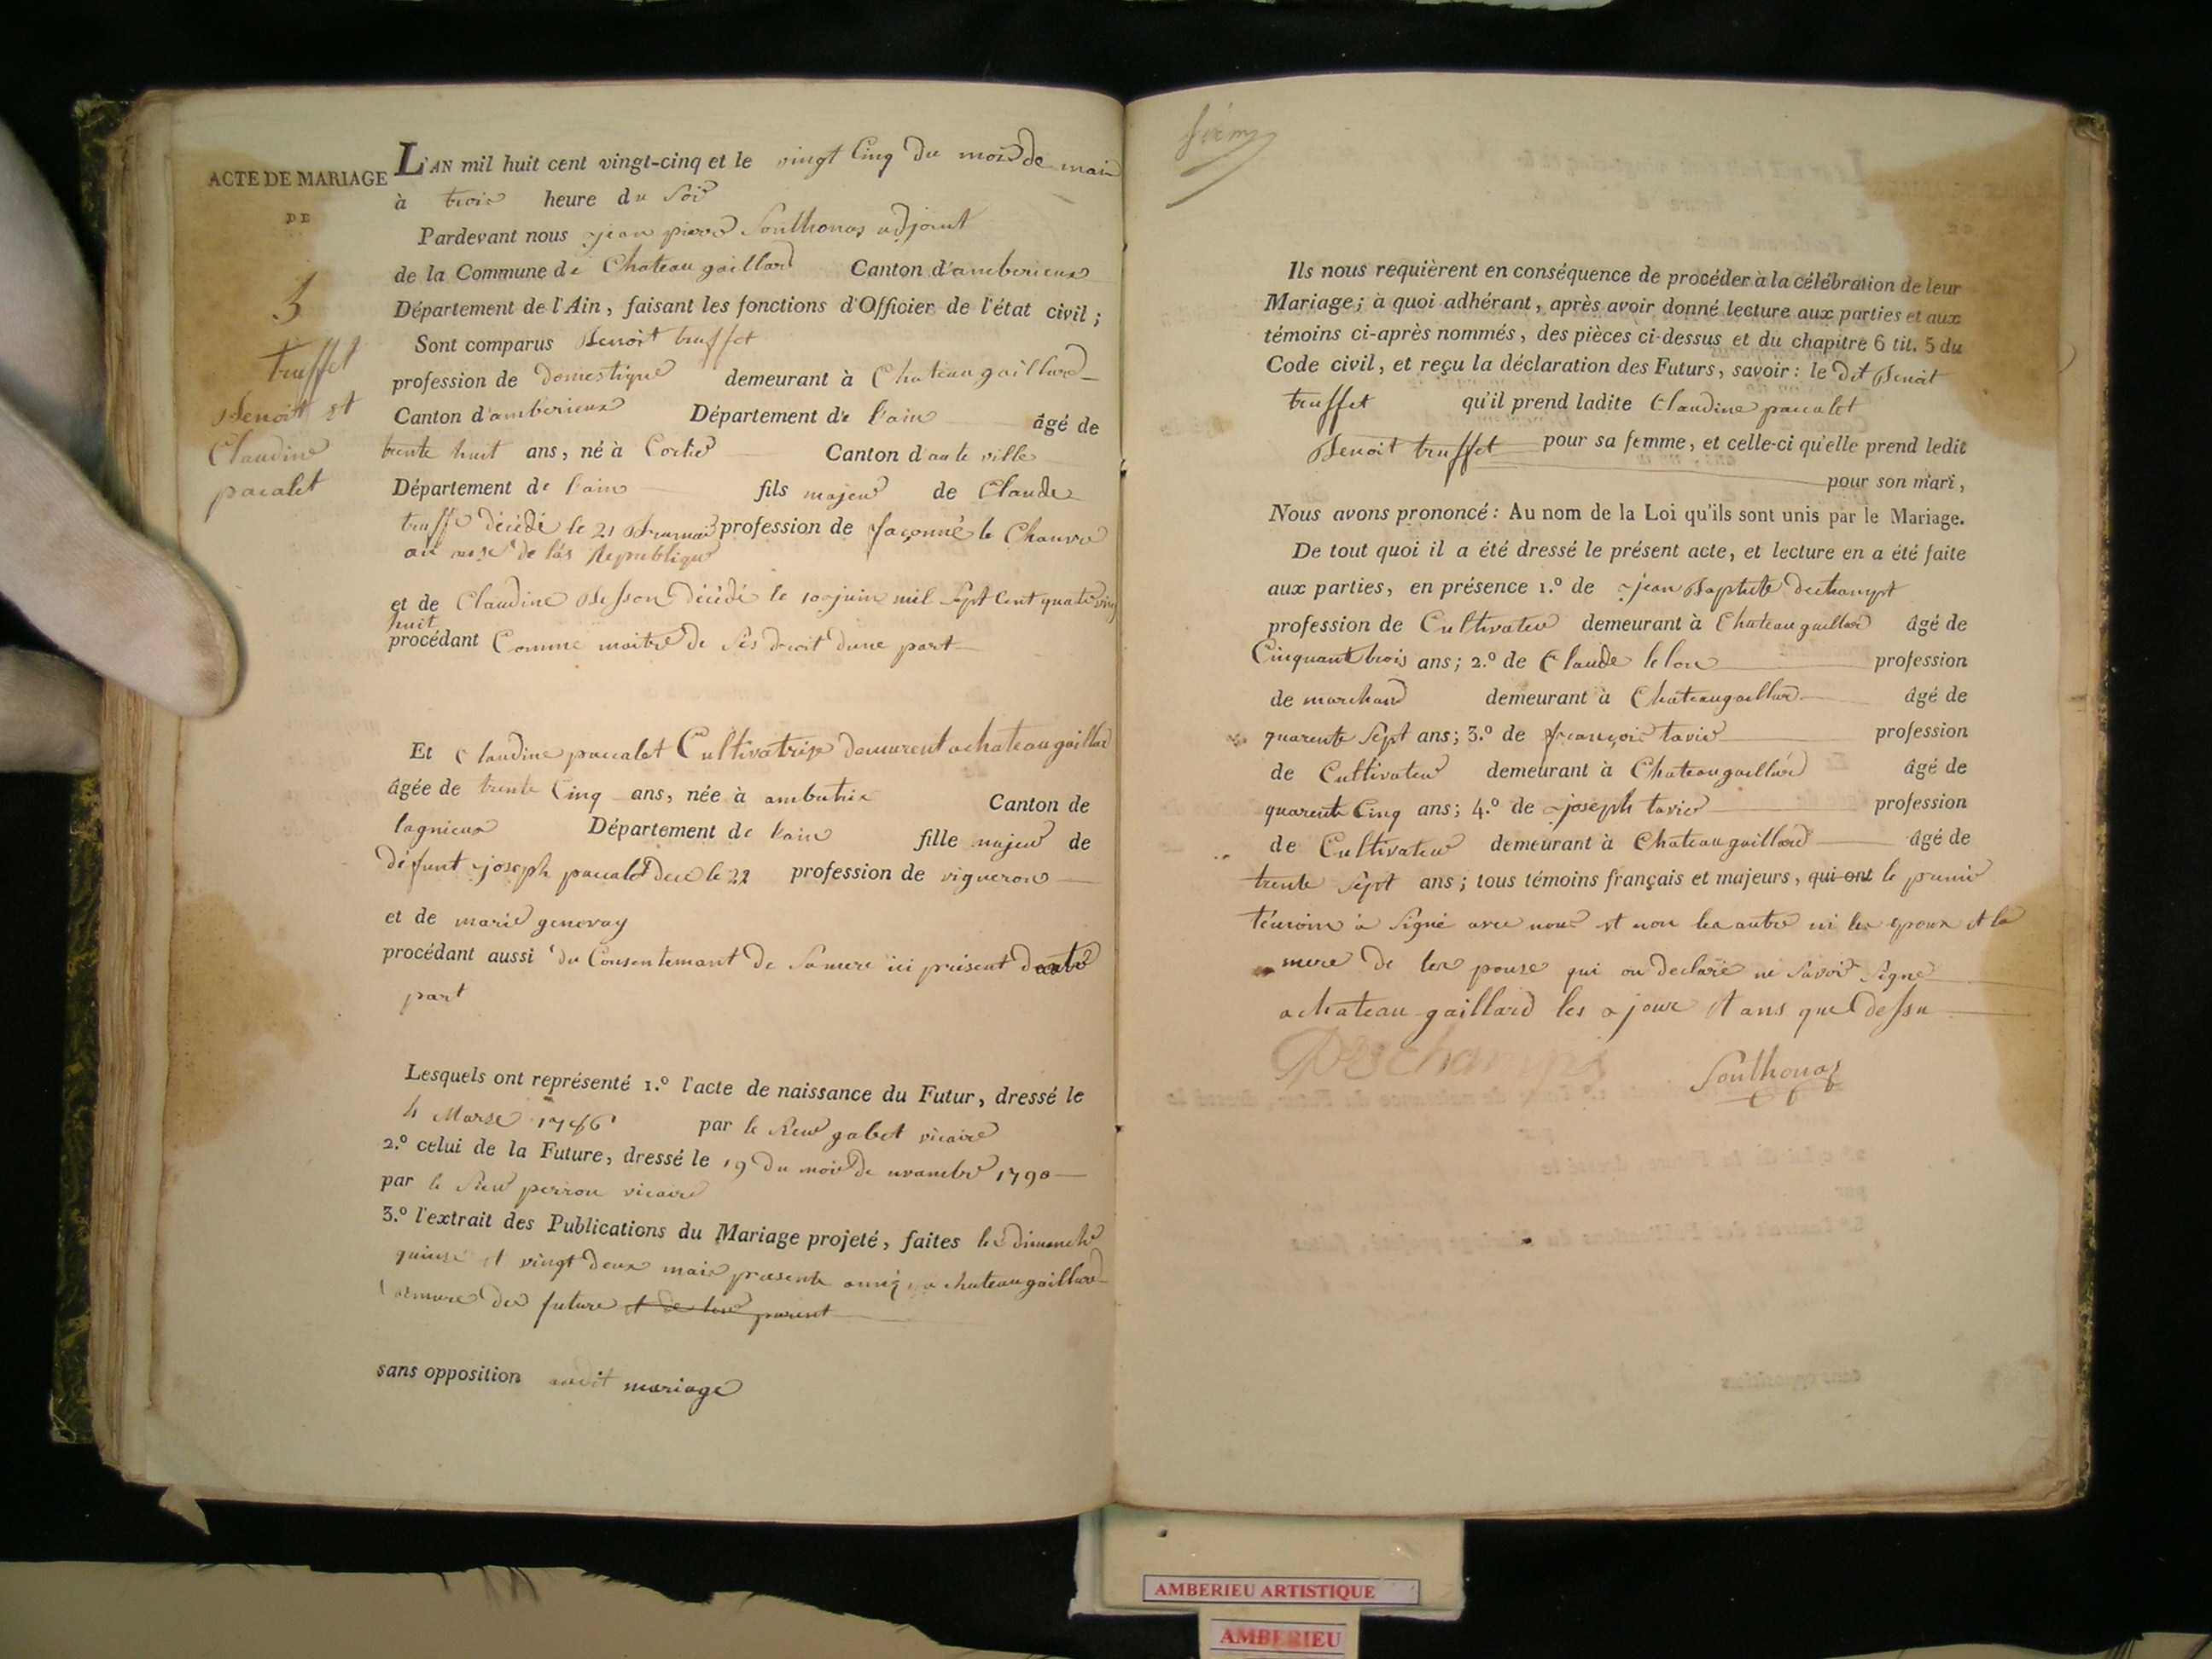 ACTE DE MARIAGE
DE
3
truffet
Benoit et
Claudine
pacalet
L'AN mil huit cent vingt-cinq et le vingt Cinq du mois de mais
à trois heure du Soir
Pardevant nous jean pierre Southonas adjoint
de la Commune de Chateau gaillard Canton d'amberieux
Département de l'Ain, faisant les fonctions d'Officier de l'état civil;
Sont comparus Benoit truffet
profession de domestique demeurant à Chateaugaillard
Canton d'amberieux Département de l'ain âgé de
trente huit ans, né à Corlie Canton d'aute ville
Département de l'ain fils majeur de Claude
truffe décédé le 21 profession de façonné le Chanvre
de las Republique
et de Claudine Besson décédé le 10 juin mil Sept Cent quatre ving
huit
procédant Comme maitre de Ses droit dune part
Et Claudine paccalet Cultivatrise demeurent a chateau gaillard
âgée de trente Cinq ans, née à ambutrix Canton de
lagnieux Département de l'ain fille majeur de
défunt joseph pacalet le 22 profession de vigneron
et de marie genevay
procédant aussi du Consentemant de Samere ici présent dautre
part
Lesquels ont représenté 1.º l'acte de naissance du Futur, dressé le
4 Marse 1786 par le Sieur gabet vicaire
2.º celui de la Future, dressé le 19 du mois de novambre 1790
par le Sieur perron vicaire
3.º l'extrait des Publications du Mariage projeté, faites les dimanche
quinse et vingt deux mais presente année a chateaugaillard
demure des future et de leur parent
sans opposition audit mariage
Ils nous requièrent en conséquence de procéder à la célébration de leur
Mariage; à quoi adhérant, après avoir donné lecture aux parties et aux
témoins ci-après nommés, des pièces ci-dessus et du chapitre 6 tit. 5 du
Code civil, et reçu la déclaration des Futurs, savoir: le dit Benoit
truffet qu'il prend ladite Claudine paccalet
Benoit truffet pour sa femme, et celle-ci qu'elle prend ledit
pour son mari,
Nous avons prononcé: Au nom de la Loi qu'ils sont unis par le Mariage.
De tout quoi il a été dressé le présent acte, et lecture en a été faite
aux parties, en présence 1.º de jean Baptiste dechampt
profession de Cultivateur demeurant à Chateau gaillard âgé de
Cinquant trois ans; 2.º de Claude lelou profession
de marchand demeurant à Chateaugaillard âgé de
quarente Sept ans; 3.º de françois tavie profession
de Cultivateur demeurant à Chateaugaillard âgé de
quarente Cinq ans; 4.º de joseph tavie profession
de Cultivateur demeurant à Chateaugaillard âgé de
trente Sept ans; tous témoins français et majeurs, qui ont le premie
témoin a Signé avec nous et non les autre ni les epoux et la
mere de les pouse qui on declare ne Savoir Signe
a chateau gaillard les a jour et ans que dessu
Deschamps Southonas
AMBERIEU ARTISTIQUE
AMBERIEU